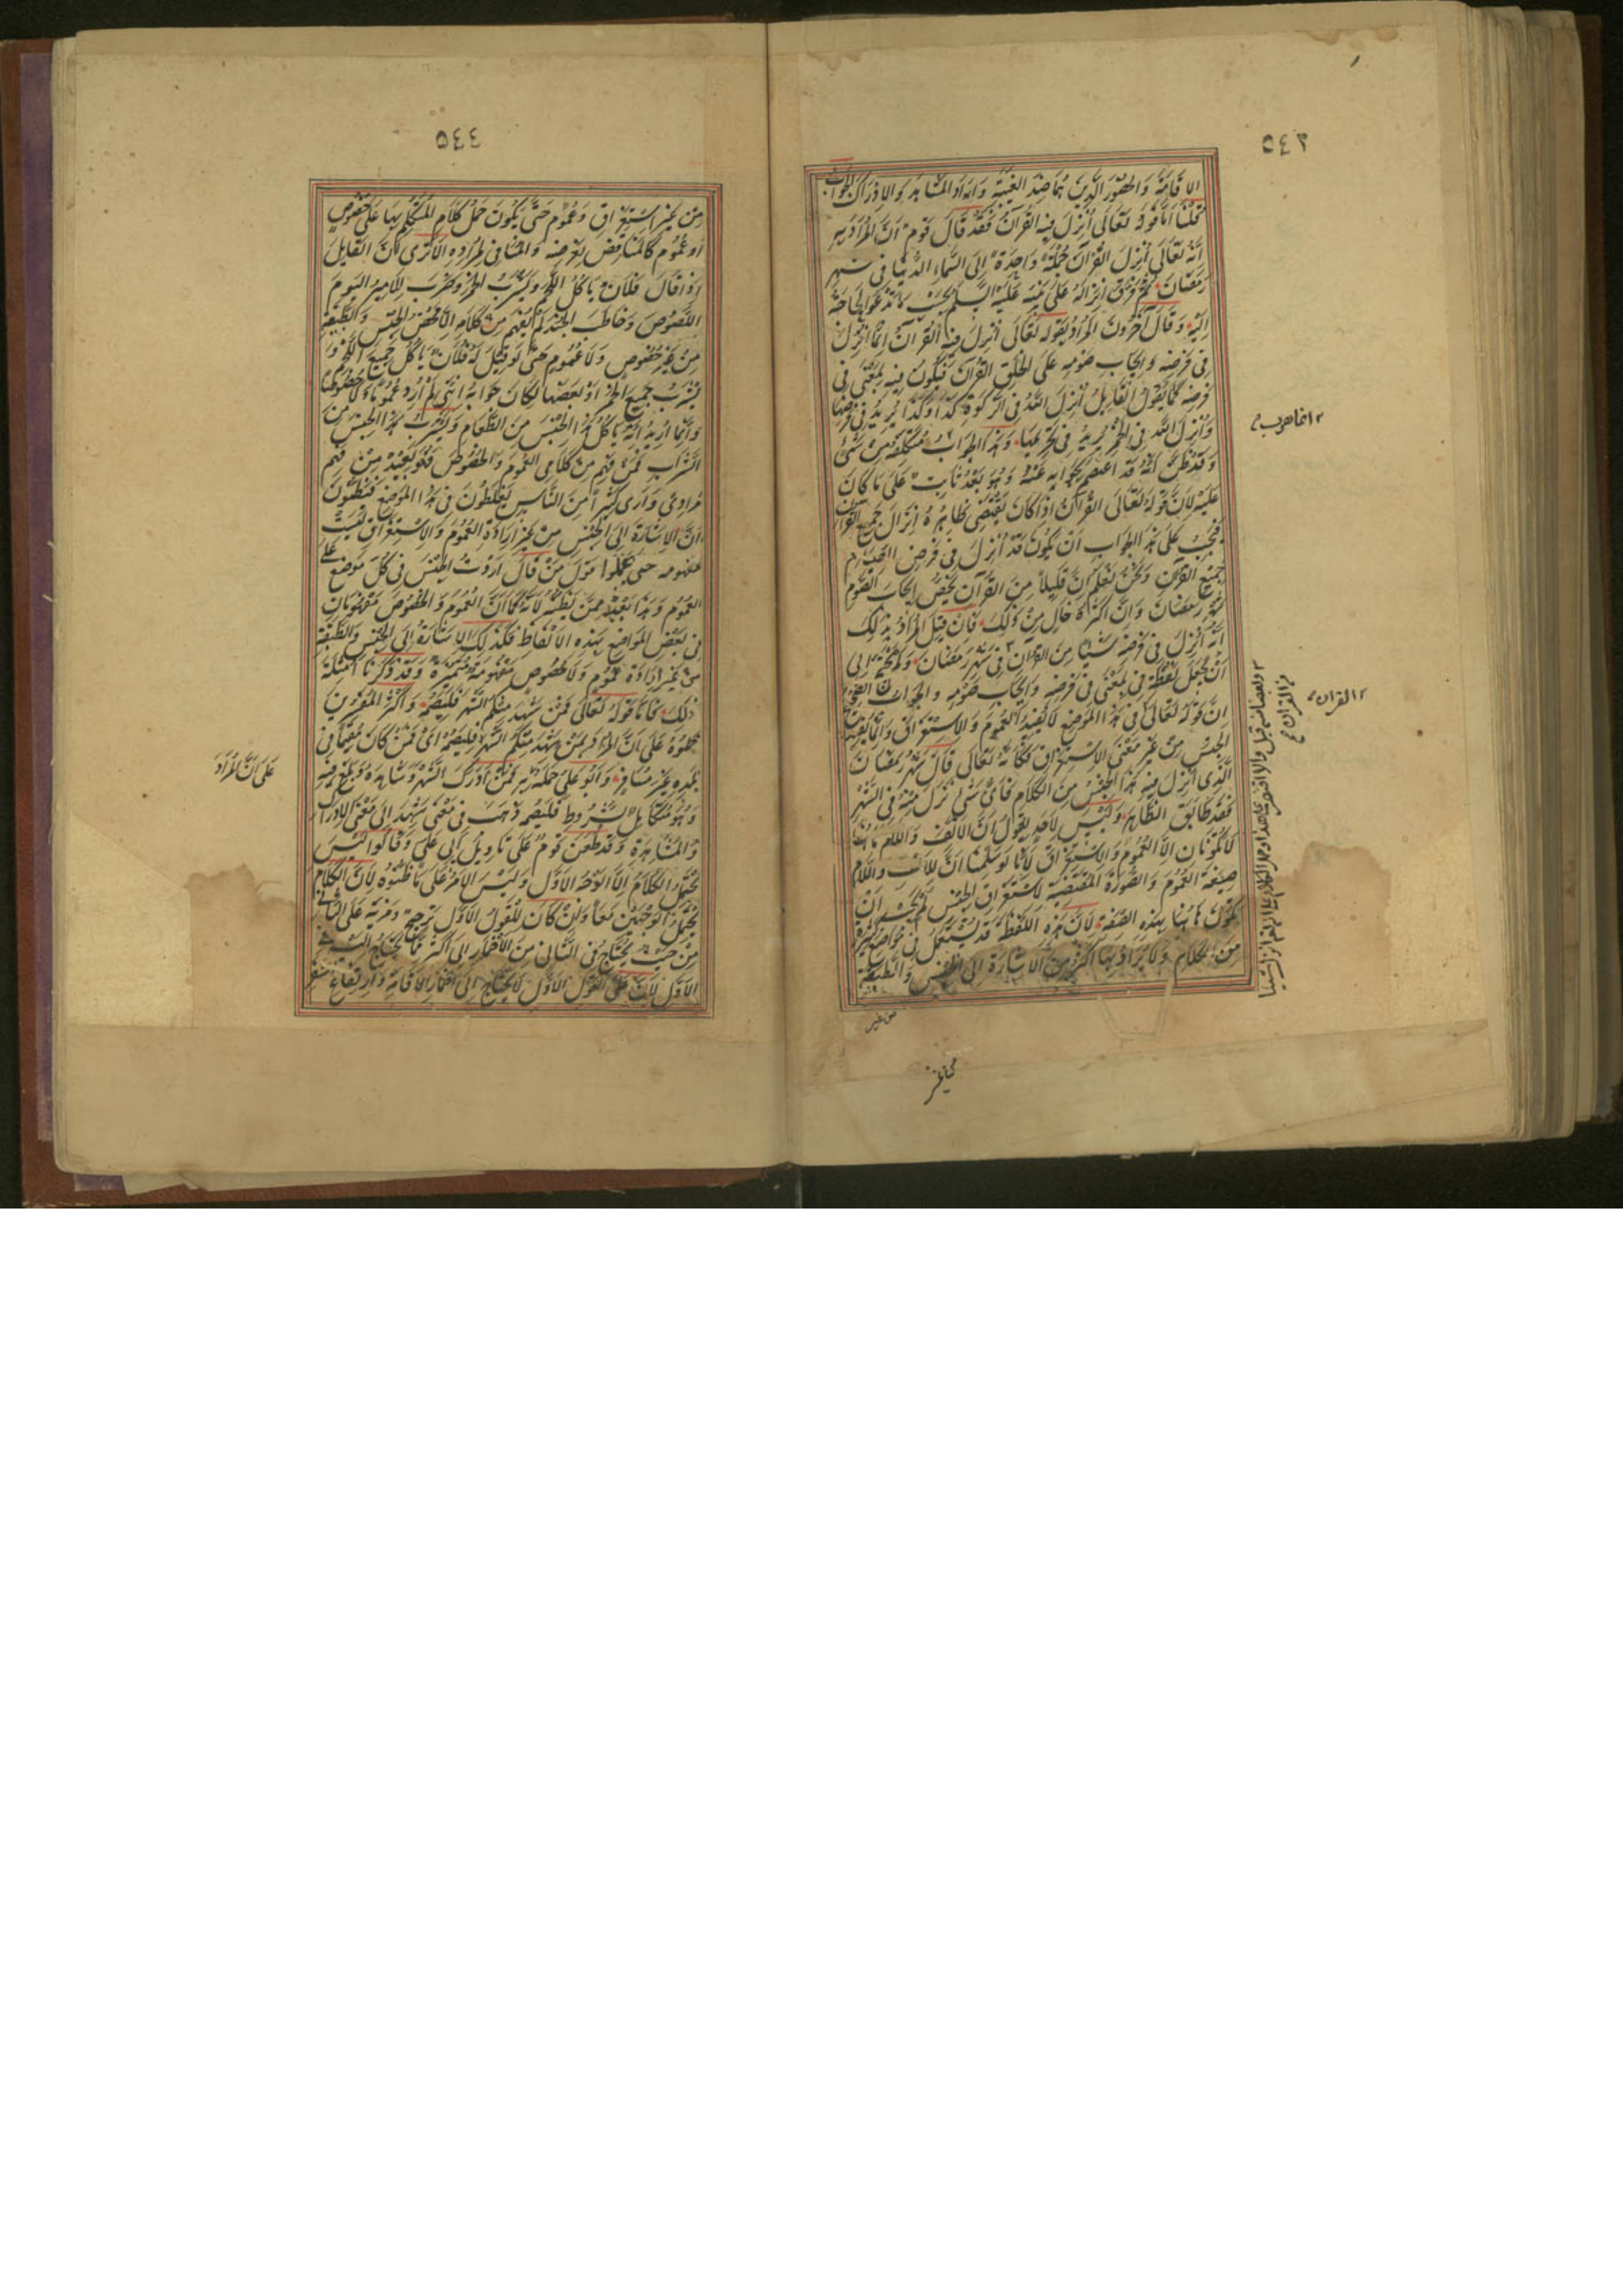 ٥٤٣
الإقامة والحضور الذين هما ضد الغيبة واراد المشاهد والادراك الجواب
قلنا اما قوله تعالى انزل فيه القرآن فقد قال قوم ان المراد به
انه تعالى انزل القرآن جملة واحدة الى السماء الدنيا في شهر
رمضان ثم فرق انزاله على نبيه عليه السلم بحسب ما تدعو الحاجة
اليه وقال آخرون المراد بقوله تعالى انزل فيه القرآن انما انزل
في فرضه وايجاب صومه على الخلق القرآن فيكون فيه بمعنى في
فرضه كما يقول القايل انزل الله في الزكوة كذا وكذا يريد في فرضها
وانزل الله في الخمر يريد في تحريمها وهذا الجواب متكلفه من شئ
وقد ظن انه قد اعتصم بجوابه عنه وهو بعد ثابت على ما كان
عليه لان قوله تعالى القرآن اذا كان يقتضي ظاهره انزال جميع القرآن
فيجب على هذا الجواب ان يكون قد انزل في فرض الصيام
جميع القرآن ونحن نعلم ان قليلا من القرآن يخص ايجاب الصوم
شهر رمضان وان اكثره خال من ذلك فان قيل المراد بذلك
انه انزل في فرضه شيئا من القرآن في شهر رمضان
ان يجعل لفظة في بمعنى في فرضه وايجاب صومه والجواب الصحيح
ان قوله تعالى في هذا الموضع لا يفيد العموم والاستغراق وانما يفيد
الجنس من غير معنى الاستغراق فكأنه تعالى قال شهر رمضان
الذي انزل فيه هذا الجنس من الكلام فاي شئ نزل منه في الشهر
فقد طابق الظاهر وليس لاحد يقول ان الالف واللام هاهنا
لا يكونان الا للعموم والاستغراق لانا لو سلمنا ان الالف واللام
صيغة العموم والصورة المقتضية لاستغراق الجنس لم يجب ان
يكون هاهنا بهذه الصفة لان هذه اللفظة قد يستعمل في مواضع كثيرة
من الكلام ولا يراد بها اكثر من الاشارة الى الجنس والطبيعة
من غير
من غير
القرآن
٥٤٤
من غير استغراق وعموم حتى يكون حمل كلام المتكلم بها على خصوص
او عموم كالمناقض لغرضه والمنافي لمراده الا ترى ان القايل
اذا قال فلان ياكل اللحم ويشرب الخمر وضرب الامير اليوم
اللصوص وخاطب الجند لم يفهم من كلامه الا محض الجنس والطبيعة
من غير خصوص ولا عموم حتى لو قيل له فلان ياكل جميع اللحم و
يشرب جميع الخمر او بعضها لكان جوابه انني لم ارد عموما ولا خصوصا
وانما اريد انه ياكل هذا الجنس من الطعام ويشرب هذا الجنس من
الشراب فمن فهم من كلامي العموم والخصوص فهو بعيد من فهم
مرادي وارى كثيرا من الناس يغلطون في هذا الموضع فيظنون
ان الاشارة الى الجنس من غير ارادة العموم والاستغراق ليست
مفهومه حتى يحملوا قول من قال اردت الجنس في كل موضع على
العموم وهذا بعيد ممن يظنه لانه كما ان العموم والخصوص مفهومان
في بعض المواضع بهذه الالفاظ فكذلك الاشارة الى الجنس والطبيعة
من غير ارادة عموم ولا خصوص مفهومة مميزة وقد ذكرنا امثلة
ذلك فاما قوله تعالى فمن شهد منكم الشهر فليصمه فاكثر المفسرين
حملوه على ان المراد بمن شهد منكم الشهر فليصمه اي فمن كان مقيما في
بلده غير مسافر وابو علي حمله به فمن ادرك الشهر وشاهده وبلغ فيه
وهو متكامل الشروط فليصمه ذهب في معنى شهد الى معنى الادراك
والمشاهدة وقد طعن قوم على تاويل ابي علي وقالوا ليس
يحتمل الكلام الا الوجه الاول وليس الامر على ما ظنوه لان الكلام
يحتمل الوجهين معا وان كان للقول الاول ترجيح ومزية على الثاني
من حيث يحتاج في الثاني من الاضمار الى اكثر مما يحتاج اليه في
الاول لان على القول الاول لا يحتاج الى اضمار الاقامة وارتفاع السفر
على ان المراد